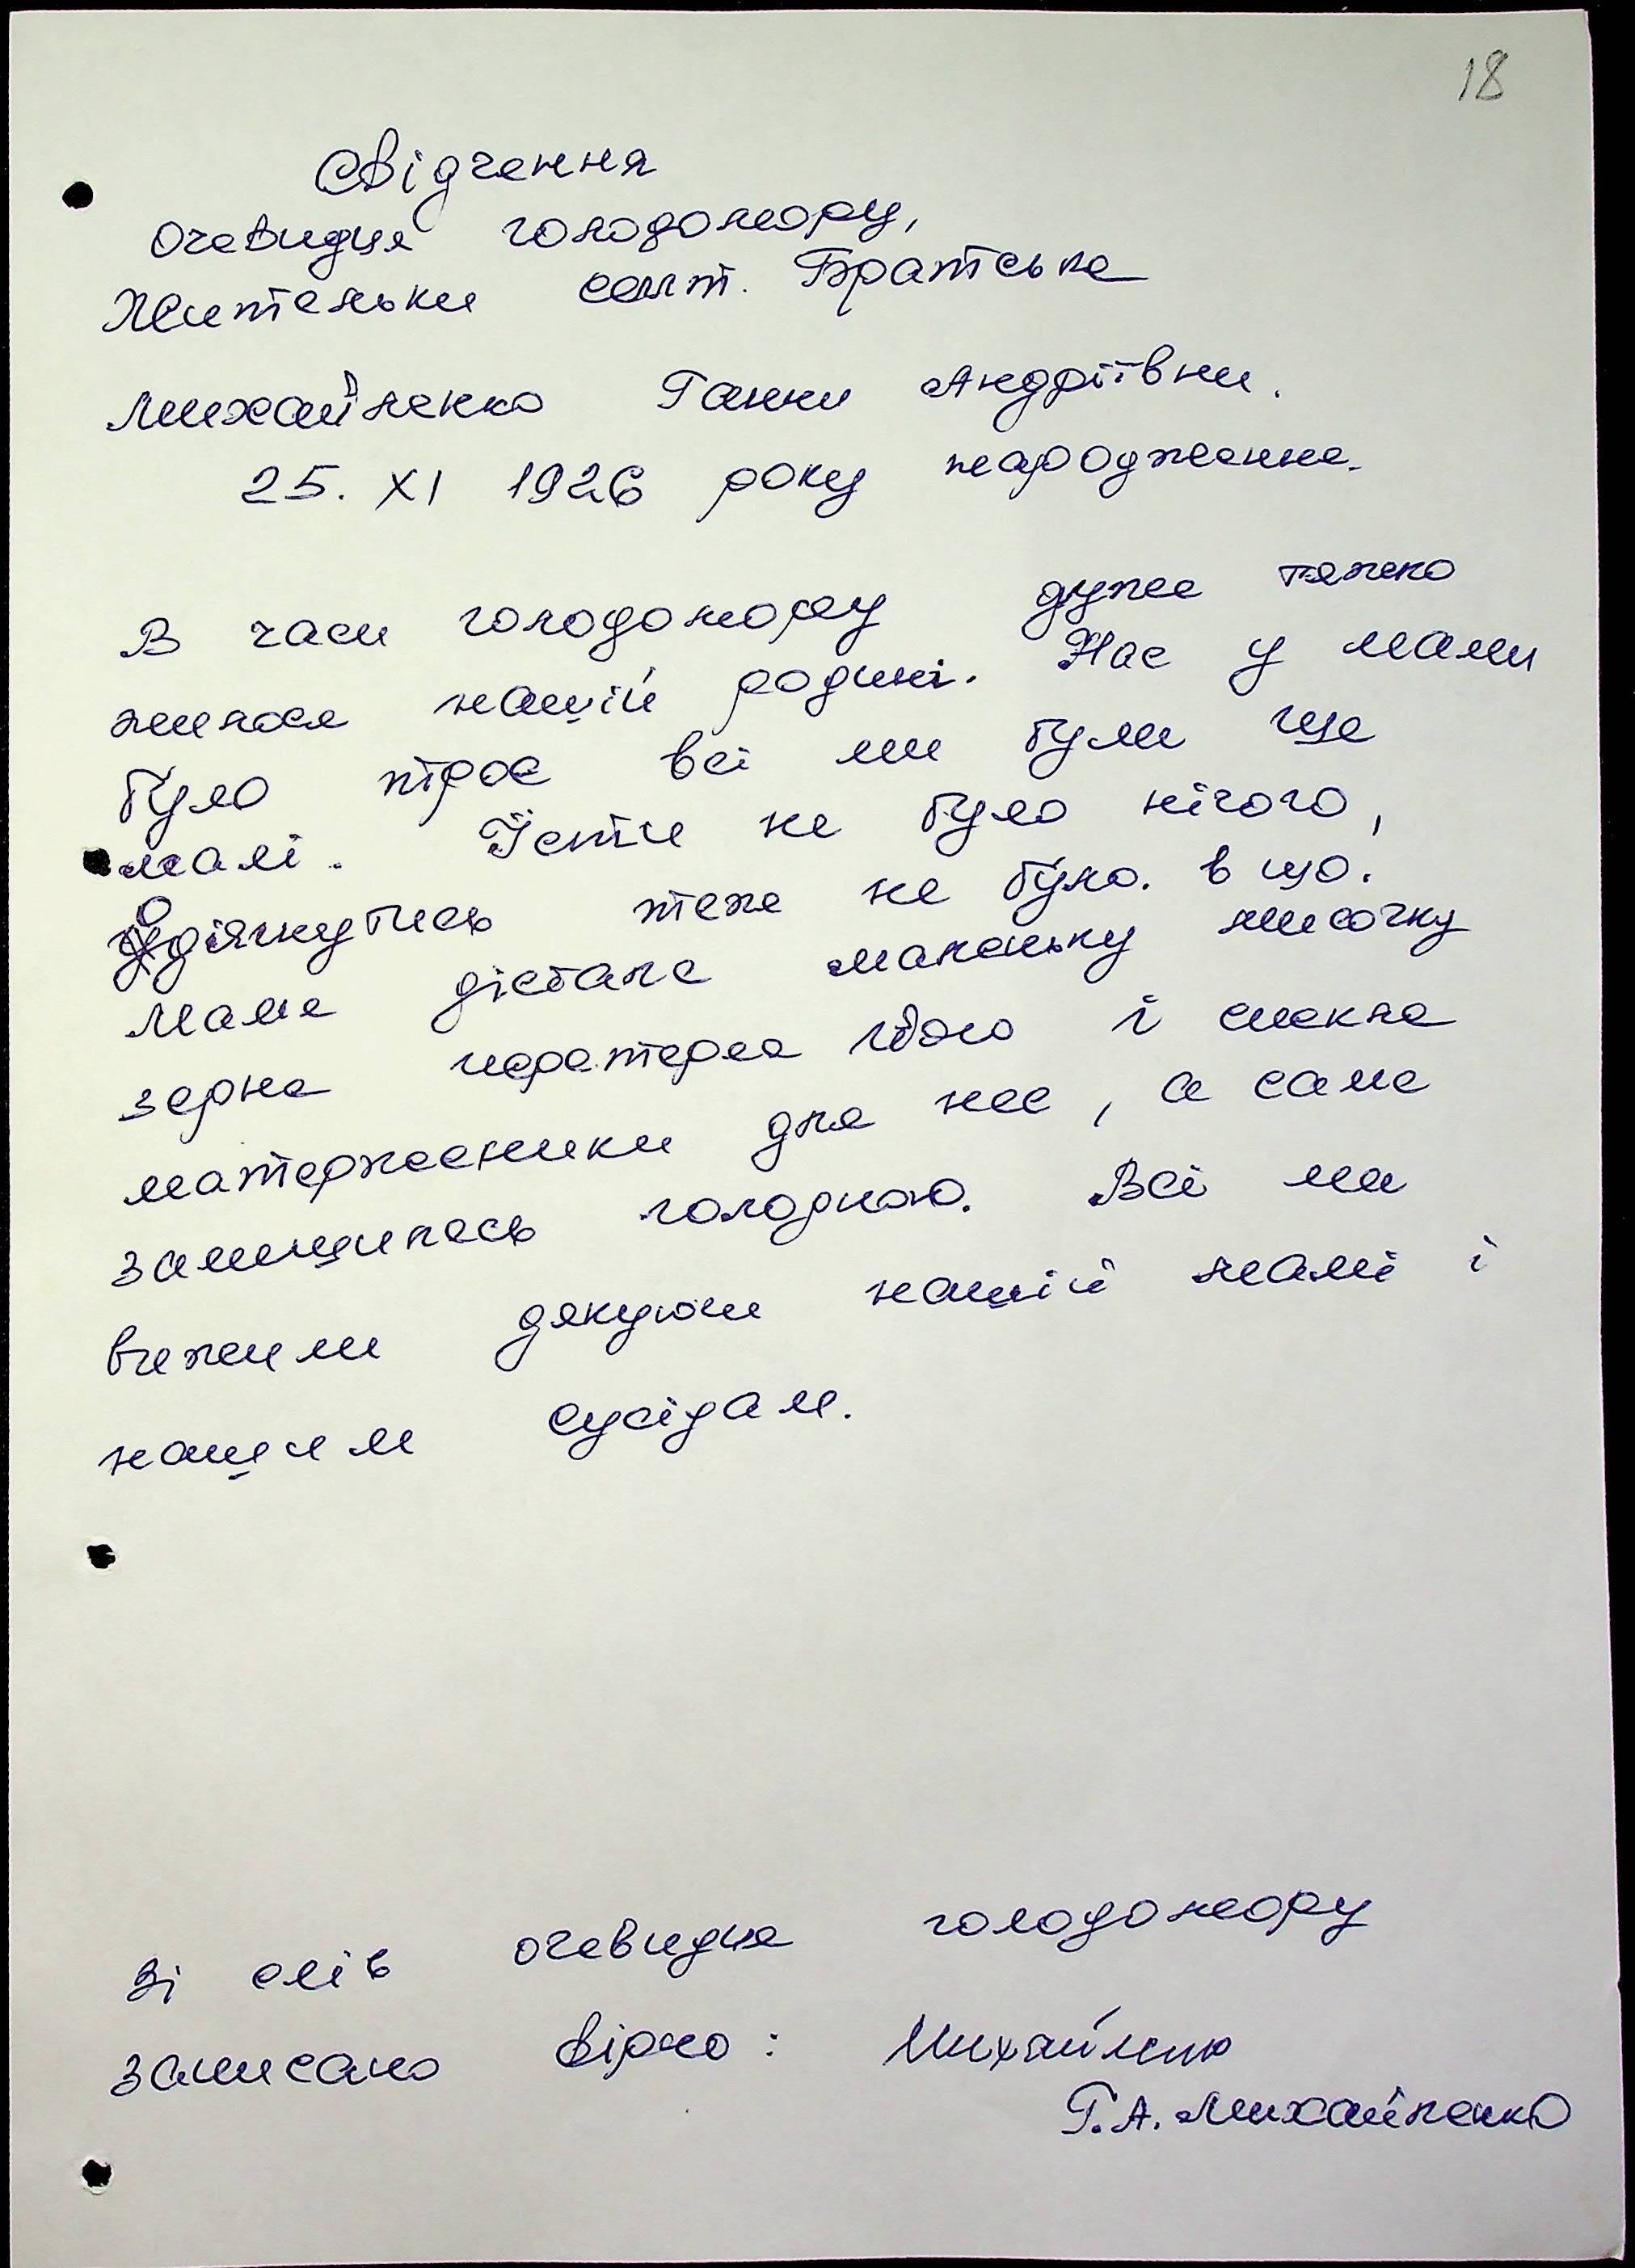 18
Свідчення
очевидця голодомору,
Жительки смт. Братське
Михайленко Ганни Андріївни.
25. XI 1926 року народження.
В часи голодомору дуже тяжко
жилося нашій родині. Нас у мами
було троє всі ми були ще
малі. Їсти не було нічого,
Одіягнутись теж не було. в що.
Мама дістала маленьку мисочку
зерна перетерла його і спекла
маторженики для нас, а сама
залишилась голодною. Всі ми
вижили дякуючи нашій мамі і
нашим сусідам.
Зі слів очевидця голодомору
записано вірно: Михайленко
Г.А. Михайленко